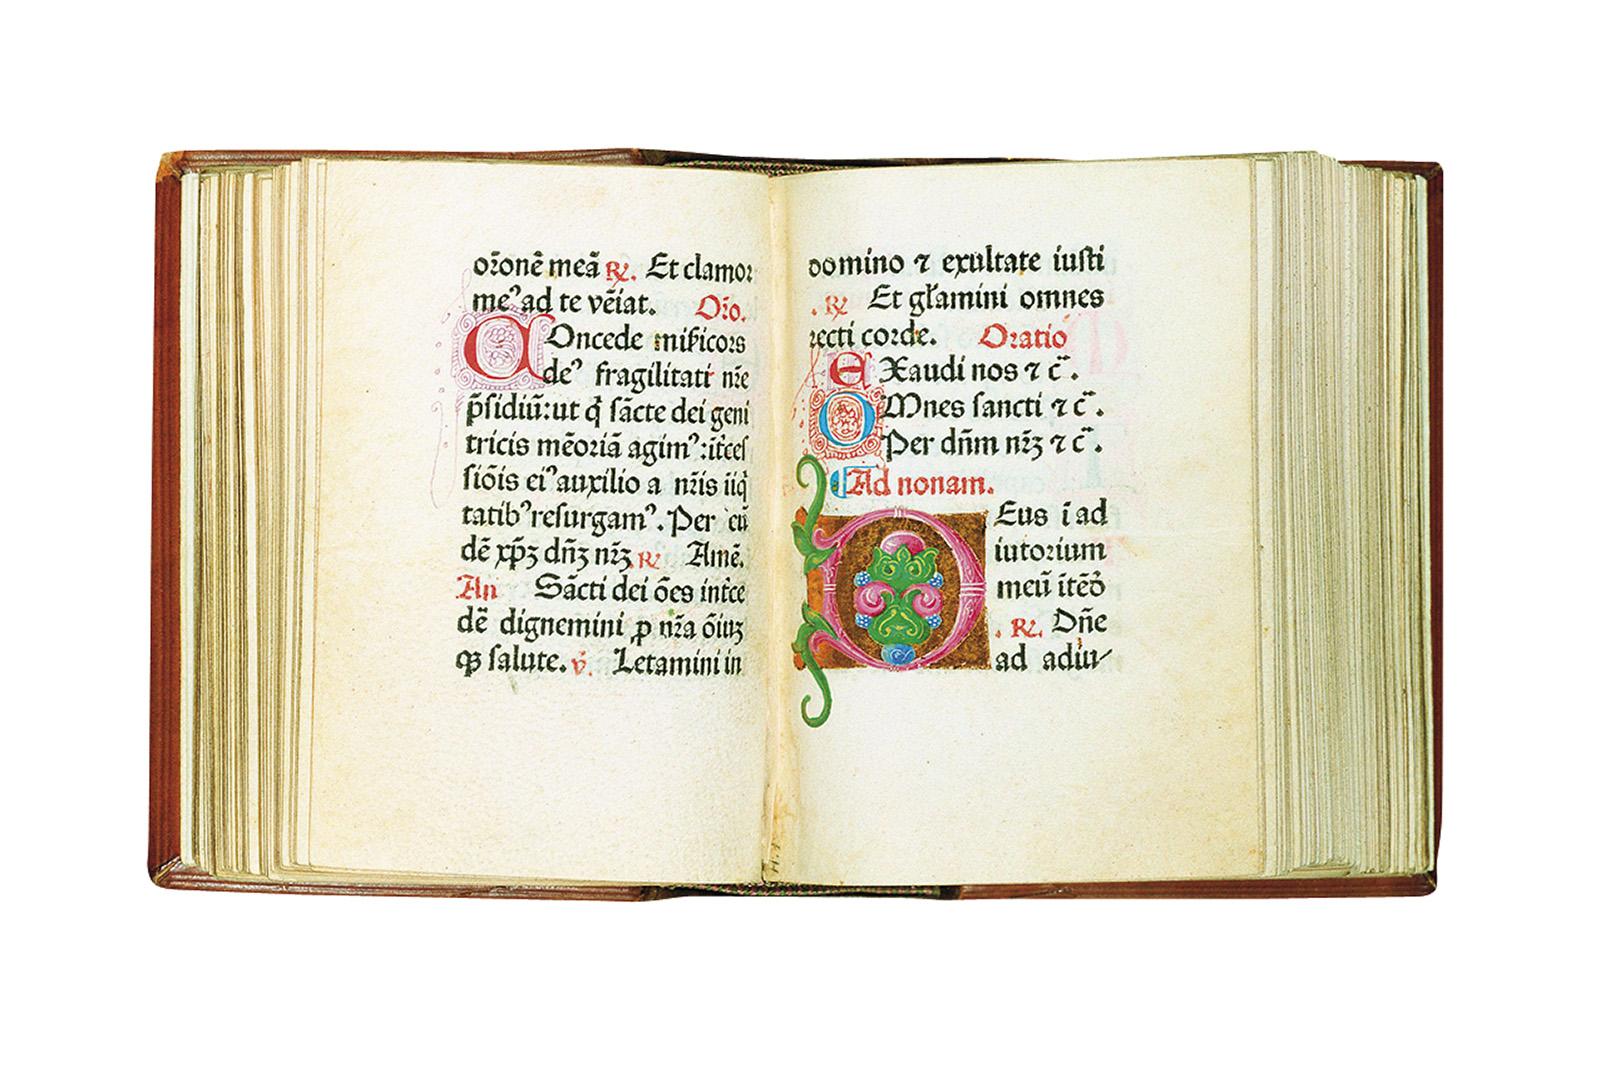 or̃onẽ meã ℟. Et clamor
meꝰ ad te vẽiat. Or̃o.
COncede miẜicors
deꝰ fragilitati nr̃e
p̃sidiũ: ut q̇ sãcte dei geni
tricis mẽoriã agimꝰ: ĩt̃ces
siõis eiꝰ auxilio a nr̃is ĩiq̇
tatibꝰ resurgamꝰ. Per eũ
dẽ xp̃ꝫ dñꝫ nr̃ꝫ. ℟. Amẽ.
An Sãcti dei ões int̃ce
dẽ dignemini ꝓ nr̃a õiuꝫ
qꝫ salute. v̇. Letamini in
domino ⁊ exultate iusti
. ℟ Et gl̃amini omnes
recti corde. Oratio
EXaudi nos ⁊ c̃.
OMnes sancti ⁊ c̃.
Per dñm nr̃ꝫ ⁊ c̃.
Ad nonam.
DEus ĩ ad
iutorium
meũ ĩtẽđ
. ℟. Dñe
ad adiu